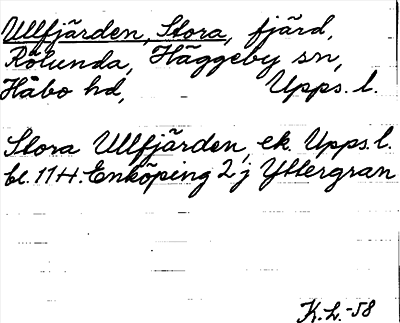 Ullfjärden, Stora, fjärd,
Rölunda, Häggeby sn,
Håbo hd, Upps. l.
Stora Ullfjärden, ek. Upps. l.
bl. 11 H. Enköping 2 j Yttergran
K.L.-58